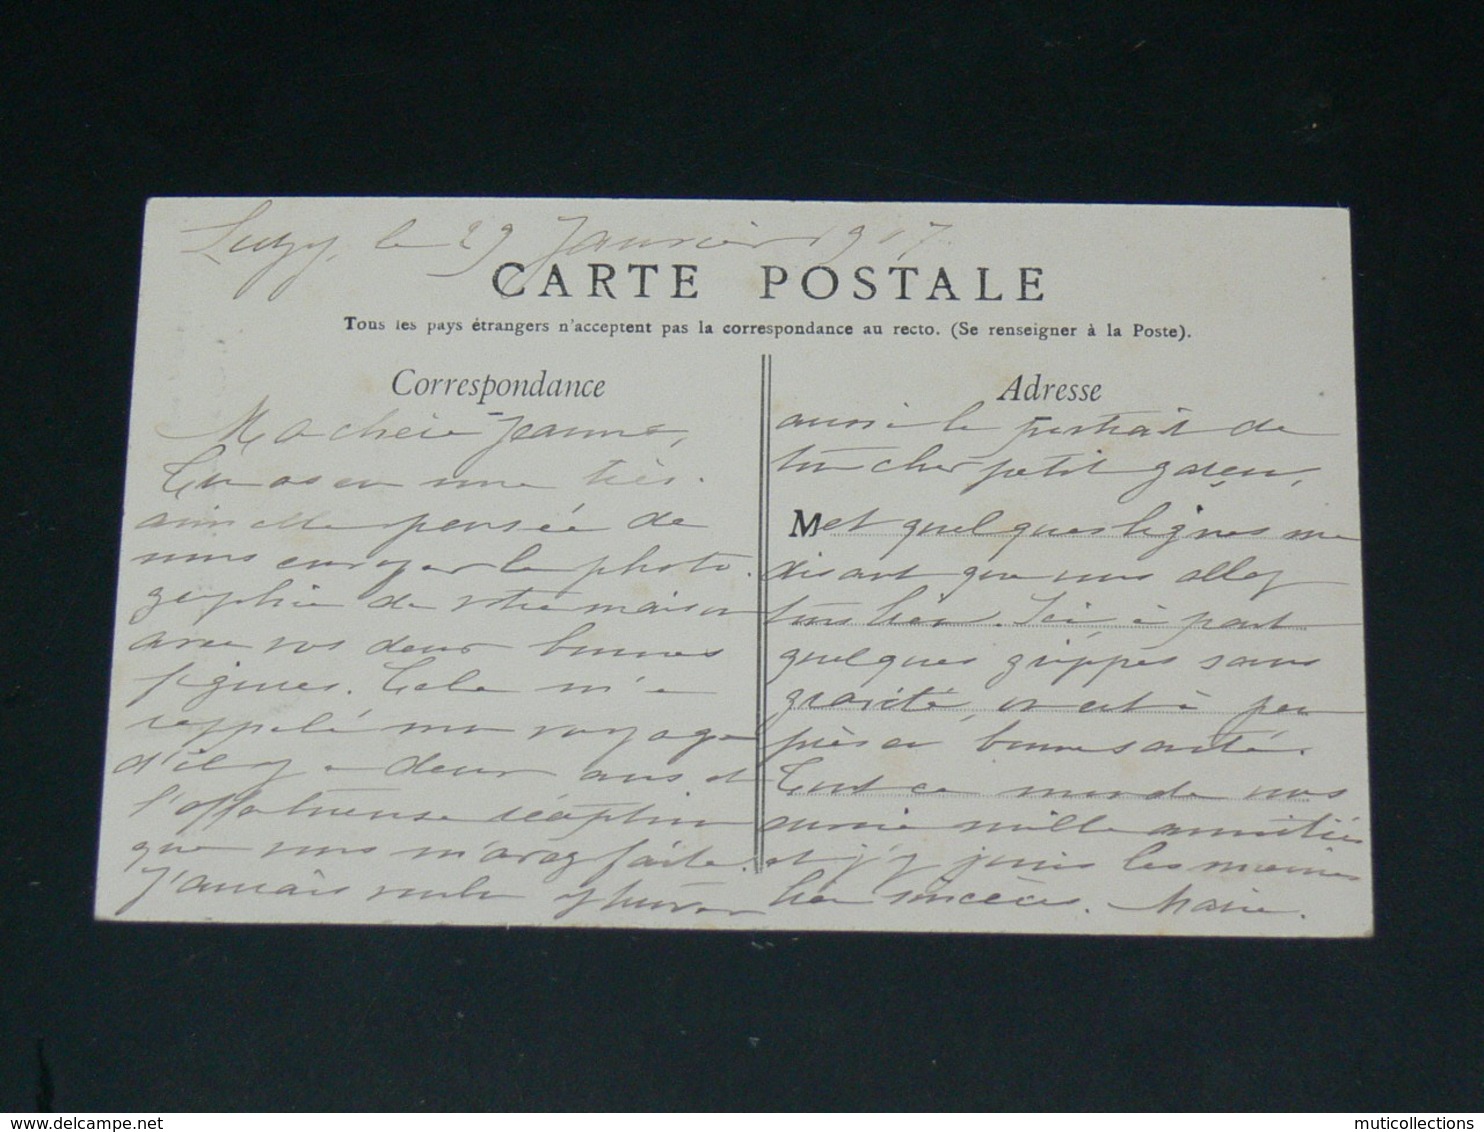 Luzy, le 29 Janvier 1917
CARTE POSTALE
Tous les pays étrangers n'acceptent pas la correspondance au recto. (Se renseigner à la Poste).
Correspondance
Ma chère Jeanne,
Tu as eu une très
aimable pensée de
nous envoyer la photo-
graphie de votre maison
avec vos deux bonnes
figures. Cela m'a
rappelé mon voyage
d'il y a deux ans et
l'affectueuse réception
que vous m'avez faite.
J'aurais voulu y trouver
Adresse
aussi le portrait de
ton cher petit garçon,
M et quelques lignes me
disant que vous allez
tous bien. Ici, à part
quelques grippes sans
gravité, on est à peu
près en bonne santé.
Tout ce monde vous
envoie mille amitiés
et j'y joins les miennes
bien sincères. Marie.
muticollections